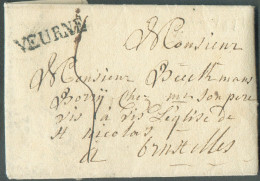 VEURNE
Monsieur
Monsieur Beeckmans
chez mr son pere
vis a vis l'eglise de
st nicolas
a bruxelles